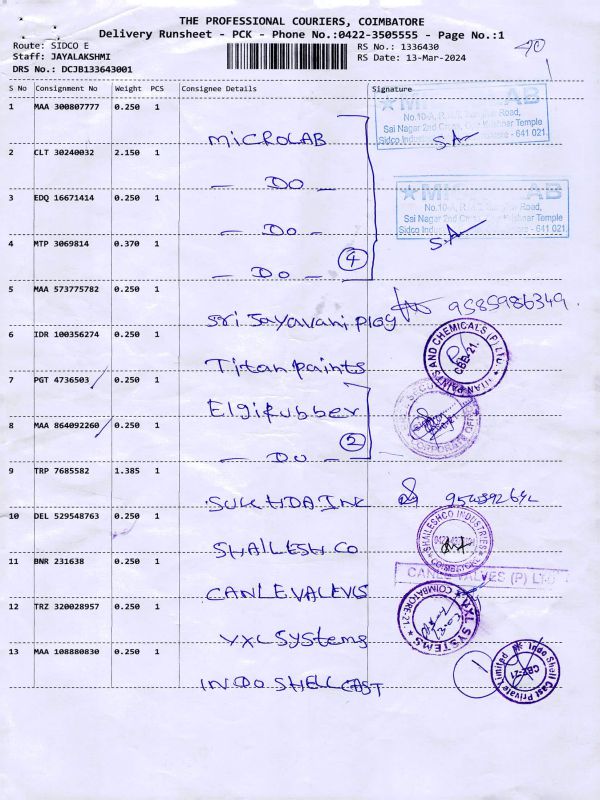 THE PROFESSIONAL COURIERS, COIMBATORE
Delivery Runsheet - PCK - Phone No.:0422-3505555 - Page No.:1
Route: SIDCO E
RS No.: 1336430
Staff: JAYALAKSHMI
RS Date: 13-Mar-2024
DRS No.: DCJB133643001
S No Consignment No Weight PCS Consignee Details Signature
1 MAA 300807777 0.250 1
MICROLAB
No.10-A,
Road,
Sai Nagar 2nd
Temple
Sidco
- 641 021.
S.A
2 CLT 30240032 2.150 1
— DO —
3 EDQ 16671414 0.250 1
— DO —
No.10-A,
Road,
Sai Nagar 2nd
Temple
Sidco
- 641 021.
S.A
4 MTP 3069814 0.370 1
— DO — 4
5 MAA 573775782 0.250 1
Sri Jayavani Ploy 9585986349.
6 IDR 100356274 0.250 1
Titan paints
TITAN PAINTS AND CHEMICALS (P) LTD.
CBE-21
7 PGT 4736503 0.250 1
Elgi Rubber
8 MAA 864092260 0.250 1
— DO — 2
CORPORATE OFFICE
9 TRP 7685582 1.385 1
SUKHDA INC
10 DEL 529548763 0.250 1
SHAILESH CO
SHAILESHCO INDUSTRIES
COIMBATORE
11 BNR 231638 0.250 1
CANLEVALEVES
CANLE VALVES (P) LTD
12 TRZ 320028957 0.250 1
VXL SYSTEMS
VXL SYSTEMS
COIMBATORE-21
13 MAA 108880830 0.250 1
INDO SHELL CAST
1
Indo Shell Cast Private Limited
CBE-21